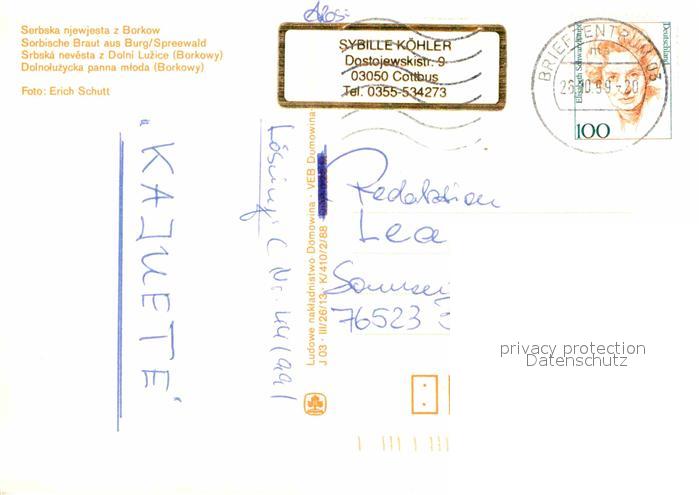 Serbska njewjesta z Borkow
Sorbische Braut aus Burg/Spreewald
Srbská nevěsta z Dolní Lužice (Borkowy)
Dolnołużycka panna młoda (Borkowy)
Foto: Erich Schutt
Abs:
SYBILLE KÖHLER
Dostojewskistr. 9
03050 Cottbus
Tel. 0355-534273
BRIEFZENTRUM 03
26.10.99-20
Deutschland
100
"KAJUETE"
Lösung: (Nr. 44/99)
Ludowe nakładnistwo Domowina · VEB Domowina
J 03 · III/26/13 · K/410/2/88
Redaktion
Lea
76523
privacy protection
Datenschutz